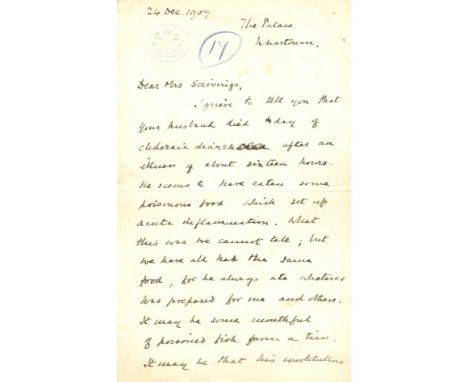 24 Dec. 1907
The Palace
Khartoum.
17
Dear Mrs Scrivings,
I grieve to tell you that
your husband died to day of
choleraic after an
illness of about sixteen hours.
He seems to have eaten some
poisonous food which set up
acute inflammation. What
this was we cannot tell; but
we have all had the same
food, for he always ate whatever
was prepared for me and others.
It may be some mouthful
of poisoned fish from a tin.
It may be that his constitution